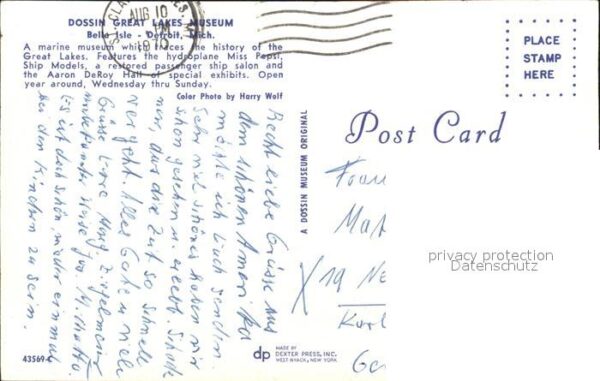 DOSSIN GREAT LAKES MUSEUM
Belle Isle - Detroit, Mich.
A marine museum which traces the history of the
Great Lakes. Features the hydroplane Miss Pepsi,
Ship Models, a restored passenger ship salon and
the Aaron DeRoy Hall of special exhibits. Open
year around, Wednesday thru Sunday.
Color Photo by Harry Wolf
AUG 10
PM
1970
PLACE
STAMP
HERE
Post Card
A DOSSIN MUSEUM ORIGINAL
Recht liebe Grüsse aus
dem schönen Amerika
möchte ich Euch senden.
Sehr viel schönes haben wir
schon gesehen u. erlebt. Schade
nur, dass die Zeit so schnell
vergeht. Alles Gute u. viele
Grüsse Eure
unbekannter Weise
Es ist doch schön, wieder einmal
bei den Kindern zu sein.
Frau
X 19
privacy protection
Datenschutz
43569-C
dp
MADE BY
DEXTER PRESS, INC.
WEST NYACK, NEW YORK